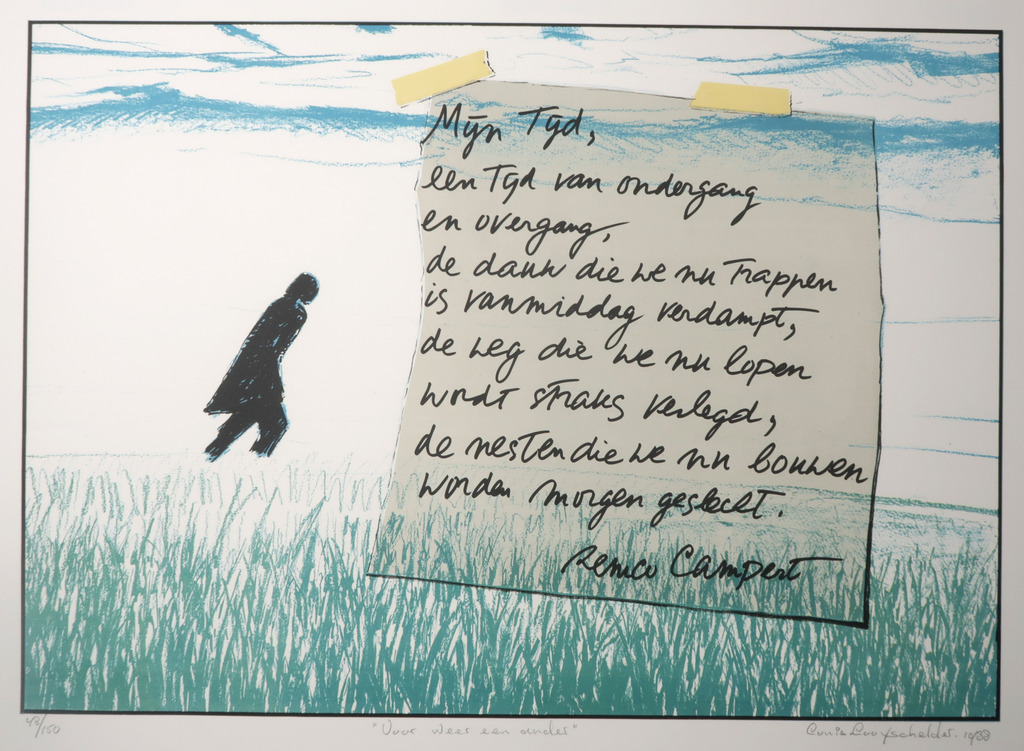 Mijn Tijd,
een Tijd van ondergang
en overgang,
de dauw die we nu Trappen
is vanmiddag verdampt,
de weg die we nu lopen
wordt straks verlegd,
de nesten die we nu bouwen
worden morgen geslecht.
Remco Campert
43/150
"Voor weer een ander"